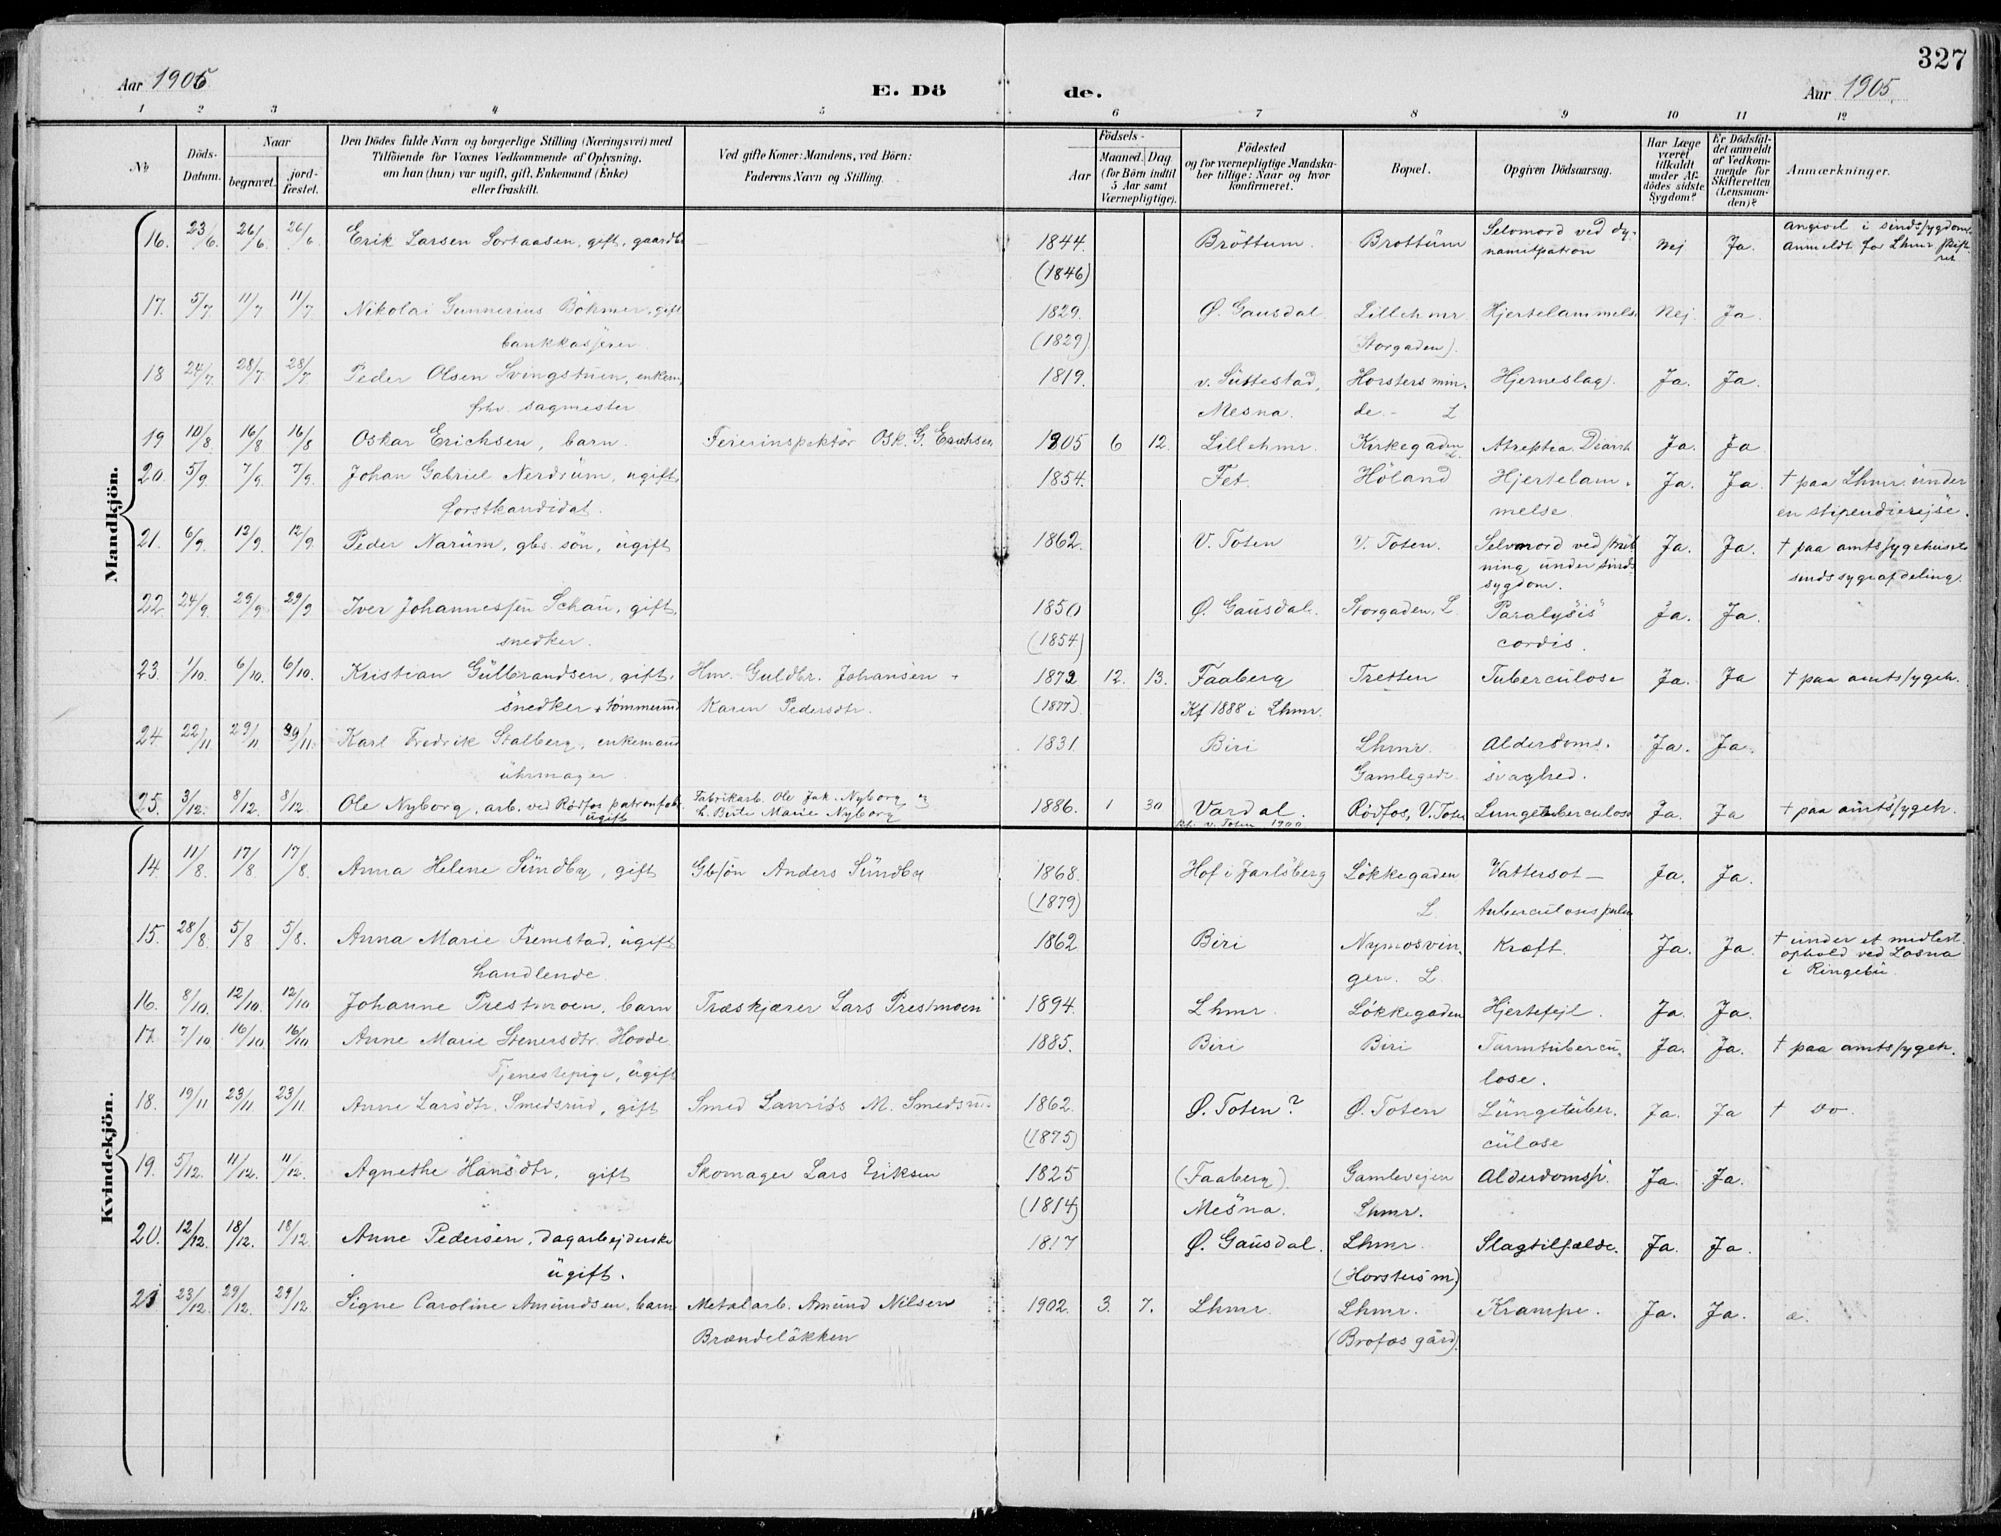 327
Aar 1905
E. Dö de.
Aar 1905.
1 2 3 4 5 6 7 8 9 10 11 12
No
Döds-Datum.
Naar
begravet.
jord-fæstet.
Den Dödes fulde Navn og borgerlige Stilling (Næringsvei) med
Tilföiende for Voxnes Vedkommende af Oplysning,
om han (hun) var ugift, gift, Enkemand (Enke)
eller fraskilt.
Ved gifte Koner: Mandens, ved Börn:
Faderens Navn og Stilling.
Födsels-
Aar
Maaned. Dag
(for Börn indtil
5 Aar samt
Værnepligtige).
Födested
og for værnepligtige Mandska-
ber tillige: Naar og hvor
konfirmeret.
Bopæl.
Opgiven Dödsaarsag.
Har Læge
været
tilkaldt
under Af-
dödes sidste
Sygdom?
Er Dödsfal-
det anmeldt
af Vedkom-
mende for
Skifteretten
(Lensman-
den)?
Anmærkninger.
Mandkjön.
16. 23/6. 26/6. 26/6 Erik Larsen Sortaasen, gift, gaardbr — 1844. Bröttum. Brottum Selvmord ved dy- Nej Ja. angivel. i sindssygdom.
(1846) namitpatron Anmeldt for Lhmr skift-
ret
17. 5/7 11/7 11/7. Nikolai Gunnerius Böhmer, gift 1829. Ø. Gausdal Lillehmr Hjertelammelse Nej. Ja.
bankkasserer (1829) (Storgaden).
18 24/7. 28/7. 28/7. Peder Olsen Svingstuen, enkem. 1819. v. Suttestad, Horsters min- Hjerneslag. Ja. Ja.
fhv. sagmester Mesna. de. - L
19 10/8. 16/8 16/8 Oskar Erichsen, barn. Feierinspektör Osk. G. Erichsen 1905 6 12. Lillehmr. Kirkegaden L. Atreptea. Diarrh Ja. Ja
20. 5/9. 7/9. 7/9. Johan Gabriel Nerdrum, ugift, 1854. Fet. Höland Hjertelam- Ja. Ja. † paa Lhmr. under
forstkandidat. melse. en stipendierejse.
21. 6/9. 12/9. 12/9. Peder Narum, gbs. sön, ugift 1862. V. Toten V. Toten. Selvmord ved Ja. Ja. † paa amtssygehusets
ning under sinds- sindssygeafdeling.
sygdom.
22. 24/9. 29/9. 29/9 Iver Johannessen Schau, gift, 1850 Ø. Gausdal. Storgaden, L. Paralysis Ja. Ja.
snedker. (1854) cordis.
23. 1/10. 6/10. 6/10. Kristian Gulbrandsen, gift. Hm. Guldbr. Johansen + 1872 12. 13. Faaberg Tretten Tuberculose Ja. Ja † paa amtssygeh.
snedker + tömmermd Karen Pedersdtr. (1877). Kf 1888 i Lhmr.
24 22/11 29/11 29/11. Karl Fredrik Stalberg, enkemand 1831. Biri Lhmr. Alderdoms- Ja. Ja.
uhrmager. Gamlegade. svaghed.
25. 3/12. 8/12 8/12. Ole Nyborg, arb. ved Rødfos patronfabr. Fabrikarb. Ole Jak. Nyborg og 1886. 1 30 Vardal. Rödfos, V. Toten Lungetuberculose Ja. Ja † paa amtssygeh.
ugift h. Berte Marie Nyborg Kf. V. Toten 1900
Kvindekjön.
14. 11/8. 17/8. 17/8. Anna Helene Sundby, gift Gbsön Anders Sundby 1868. Hof i Jarlsberg Lökkegaden Vattersot — Ja. Ja.
(1879) L. tuberculosis pulm
15. 28/8. 5/8 5/8. Anna Marie Fremstad, ugift 1862 Biri Nymosvin- Kræft. Ja. Ja. † under et midlert.
handlende. gen. L. ophold ved Losna
i Ringebu.
16. 8/10. 12/10 12/10 Johanne Prestmoen, barn Træskjærer Lars Prestmoen 1894. Lhmr. Lökkegaden Hjertefejl. Ja. Ja.
17. 7/10 16/10. 16/10 Anne Marie Stenersdtr. Hovde 1885. Biri Biri Tarmtubercu- Ja. Ja. † paa amtssygeh.
Tjenestepige, ugift lose.
18. 19/11 23/11 23/11. Anne Larsdtr. Smedsrud, gift Smed Laurits M. Smedsru- 1862. Ø. Toten? Ø. Toten Lungetuber- Ja. Ja † do.
(1875) culose
19. 5/12. 11/12. 11/12. Agnethe Hansdtr. gift Skomager Lars Eriksen 1825 (Faaberg). Gamlevejen Alderdomssv. Ja. Ja.
(1814) Mesna. Lhmr.
20. 12/12. 18/12. 18/12. Anne Pedersen, dagarbejderske 1817 Ø. Gausdal. Lhmr. Slagtilfælde. Ja. Ja.
ugift. (Horsters m)
21 23/12. 29/12. 29/12 Signe Caroline Amundsen, barn Metalarb. Amund Nilsen 1902. 3. 7. Lhmr. Lhmr. Krampe. Ja. Ja. æ.
Brændelökken (Brofos gård).